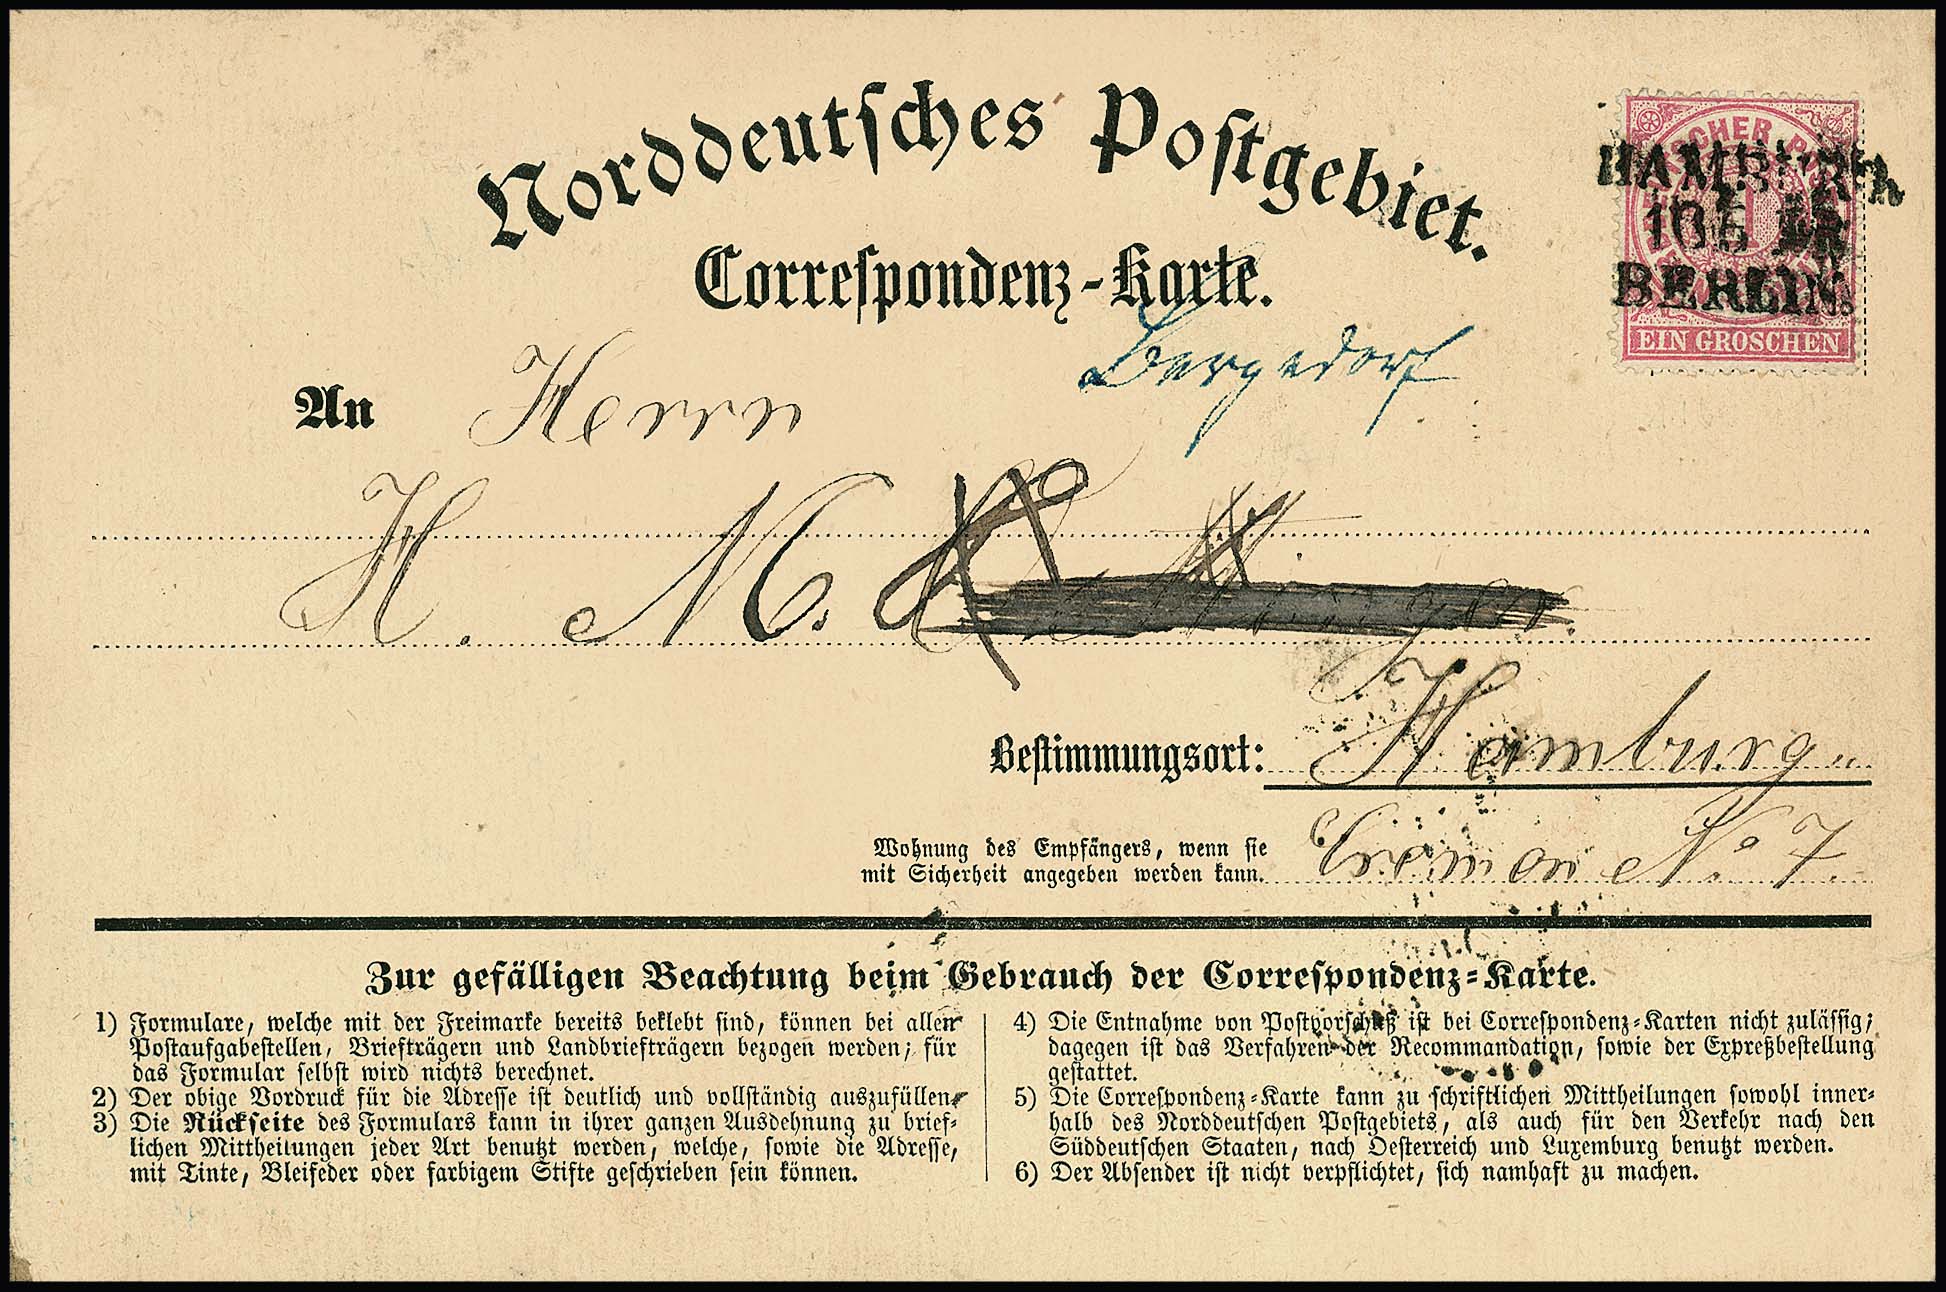 Norddeutsches Postgebiet.
Correspondenz-Karte.
HAMBURG
BERLIN.
EIN GROSCHEN
Bergedorf
An Herrn
H. M.
Bestimmungsort: Hamburg
Wohnung des Empfängers, wenn sie
mit Sicherheit angegeben werden kann. Cremon No. 7.
Zur gefälligen Beachtung beim Gebrauch der Correspondenz-Karte.
1) Formulare, welche mit der Freimarke bereits beklebt sind, können bei allen
Postaufgabestellen, Briefträgern und Landbriefträgern bezogen werden; für
das Formular selbst wird nichts berechnet.
2) Der obige Vordruck für die Adresse ist deutlich und vollständig auszufüllen.
3) Die Rückseite des Formulars kann in ihrer ganzen Ausdehnung zu brief-
lichen Mittheilungen jeder Art benutzt werden, welche, sowie die Adresse,
mit Tinte, Bleifeder oder farbigem Stifte geschrieben sein können.
4) Die Entnahme von Postvorschuß ist bei Correspondenz-Karten nicht zulässig;
dagegen ist das Verfahren der Recommandation, sowie der Expreßbestellung
gestattet.
5) Die Correspondenz-Karte kann zu schriftlichen Mittheilungen sowohl inner-
halb des Norddeutschen Postgebiets, als auch für den Verkehr nach den
Süddeutschen Staaten, nach Oesterreich und Luxemburg benutzt werden.
6) Der Absender ist nicht verpflichtet, sich namhaft zu machen.